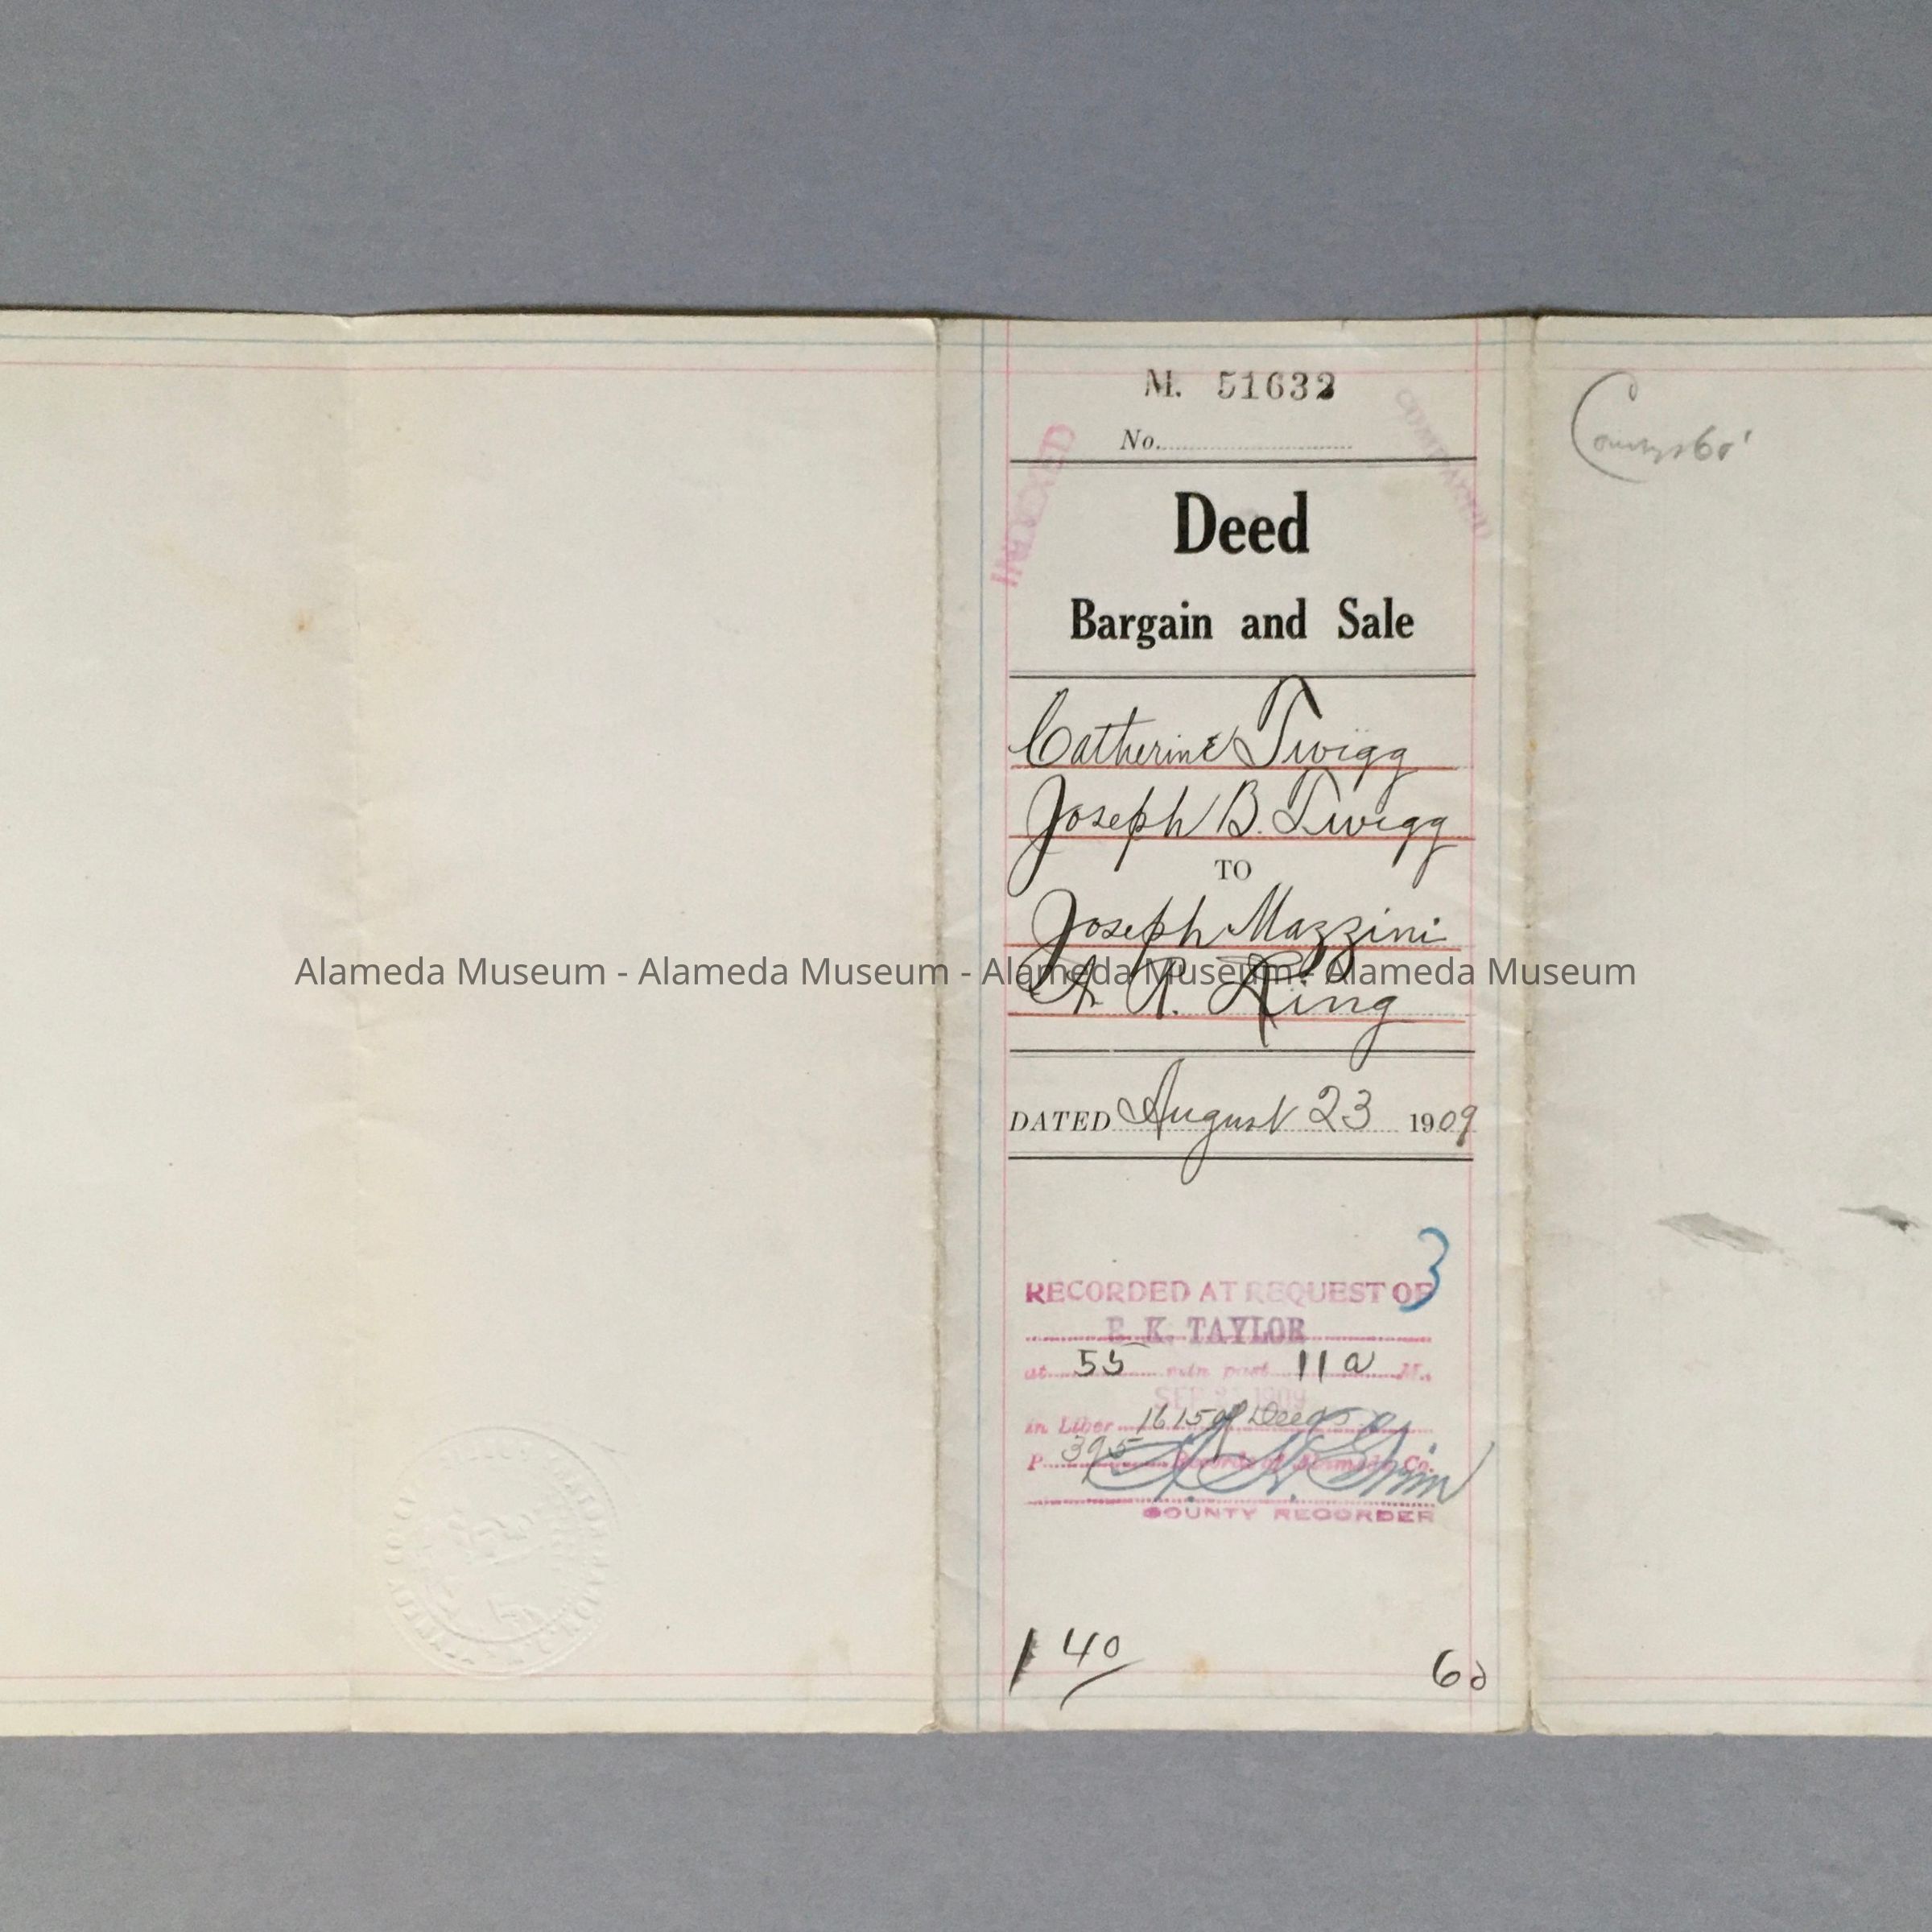 M. 51632
No.
INDEXED
COMPARED
Deed
Bargain and Sale
Catherine Twigg
Joseph B. Twigg
TO
Joseph Mazzini
A. R. King
DATED August 23 1909
3
RECORDED AT REQUEST OF
E. K. TAYLOR
at 55 min past 11 a M.,
SEP 1909
in Liber 1615 of Deeds
P 395 Records of Alameda Co.
COUNTY RECORDER
1 40
60
Alameda Museum - Alameda Museum - Alameda Museum - Alameda Museum